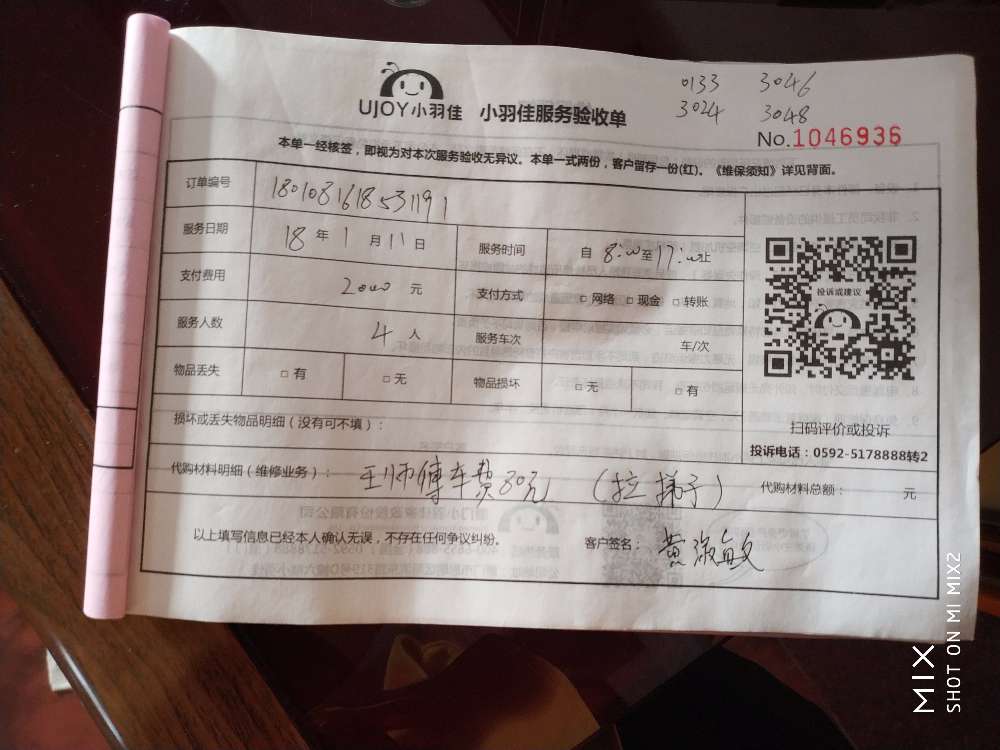 0133 3046
3024 3048
UJOY小羽佳 小羽佳服务验收单
No.1046936
本单一经核签，即视为对本次服务验收无异议。本单一式两份，客户留存一份(红)。《维保须知》详见背面。
订单编号 1801081618531191
服务日期 18 年 1 月 11 日 服务时间 自 8:00 至 17:00 止
支付费用 2000 元 支付方式 □ 网络 □ 现金 □ 转账
服务人数 4 人 服务车次 车/次
物品丢失 □ 有 □ 无 物品损坏 □ 无 □ 有
投诉或建议
扫码评价或投诉
投诉电话：0592-5178888转2
损坏或丢失物品明细（没有可不填）：
代购材料明细（维修业务）： 王师傅车费80元 （拉梯子） 代购材料总额： 元
以上填写信息已经本人确认无误，不存在任何争议纠纷。 客户签名： 黄淑敏
MIX
SHOT ON MI MIX2